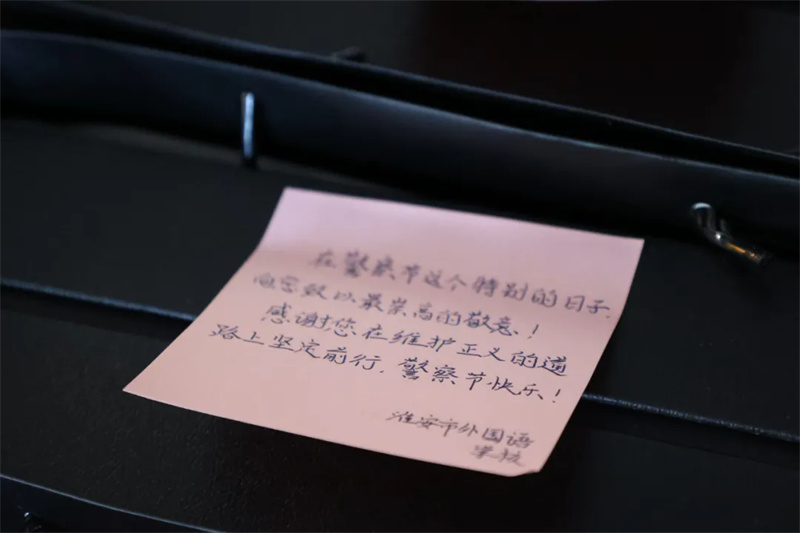 在警察节这个特别的日子,
向您致以最崇高的敬意!
感谢您在维护正义的道
路上坚定前行,警察节快乐!
淮安市外国语
学校